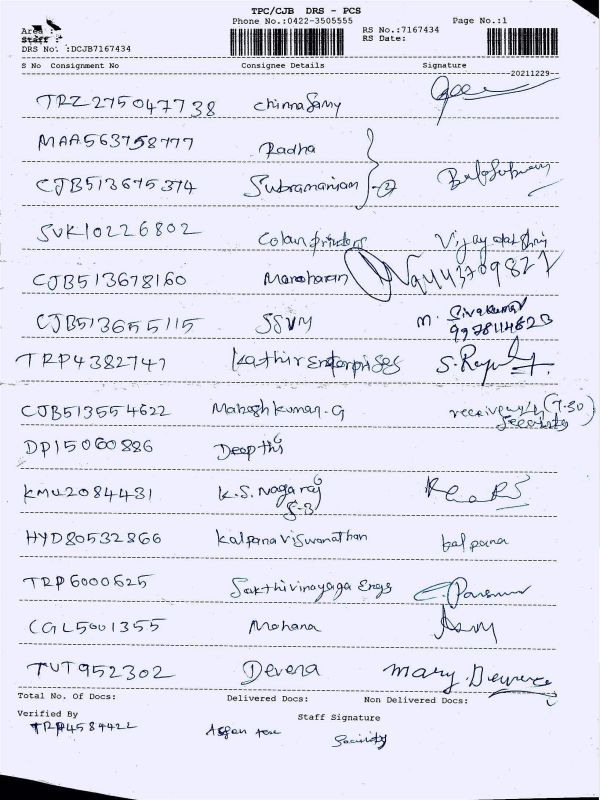 TPC/CJB DRS - PCS
Phone No.:0422-3505555 Page No.:1
Area :
Staff :
RS No.:7167434
RS Date:
DRS No. :DCJB7167434
S No Consignment No Consignee Details Signature
20211229
TRZ275047738 chinnaSamy
MAA563758777 Radha
CJB513675374 Subramaniam -2
SVK10226802 Colour printers Vijayalakshmi
CJB513678160 Manoharan 9443709827
CJB513655115 SSVM M. Sivakumar
TRP4382747 Kathir Enterprises
CJB513554622 Maheshkumar.G (7.30)
Security
DP15060886 Deepthi
KMU2084431 K.S. Nagaraj
S-B
HYD80532866 Kalpana viswanathan kalpana
TRP6000625 Sakthivinayaga Engs
CGL5001355 Mohana
TVT952302 Devena Mary.
Total No. Of Docs: Delivered Docs: Non Delivered Docs:
Verified By Staff Signature
TRP4584422